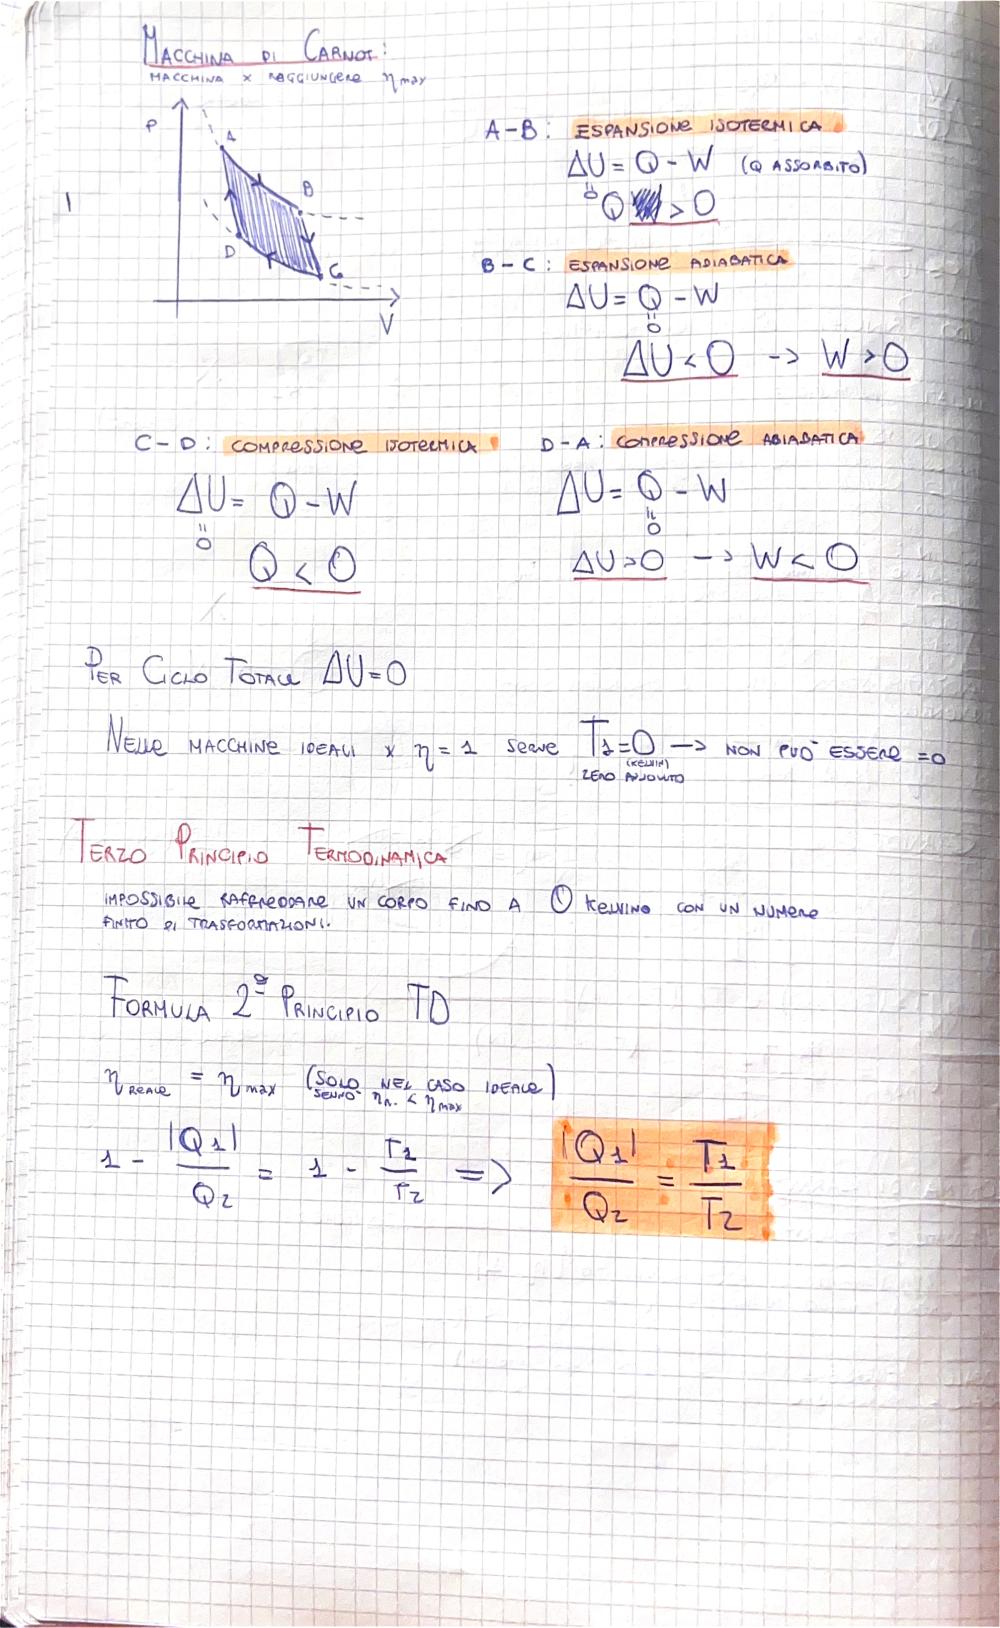 MACCHINA DI CARNOT:
MACCHINA x RAGGIUNGERE η max
P
A
B
D
C
V
A-B: ESPANSIONE ISOTERMICA
ΔU = Q - W (Q ASSORBITO)
"
0
Q > 0
B-C: ESPANSIONE ADIABATICA
ΔU = Q - W
"
0
ΔU < 0 -> W > 0
C-D: COMPRESSIONE ISOTERMICA
ΔU = Q - W
"
0
Q < 0
D-A: COMPRESSIONE ADIABATICA
ΔU = Q - W
"
0
ΔU > 0 -> W < 0
PER CICLO TOTALE ΔU = 0
NELLE MACCHINE IDEALI x η = 1 SERVE T1 = 0 -> NON PUÒ ESSERE = 0
(KELVIN)
ZERO ASSOLUTO
TERZO PRINCIPIO TERMODINAMICA
IMPOSSIBILE RAFFREDDARE UN CORPO FINO A 0 KELVINO CON UN NUMERO
FINITO DI TRASFORMAZIONI.
FORMULA 2º PRINCIPIO TD
η REALE = η max (SOLO NEL CASO IDEALE)
SENNÒ η R. < η max
1 - |Q1| / Q2 = 1 - T1 / T2 => |Q1| / Q2 = T1 / T2